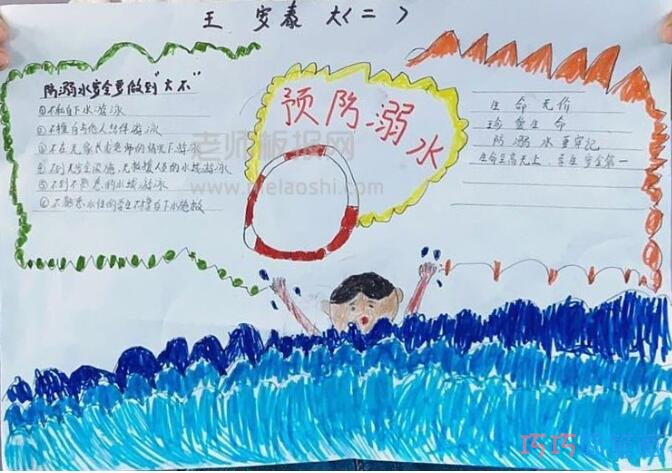 王安泰 大(二)
防溺水安全要做到"六不"
①不私自下水游泳
②不擅自与他人结伴游泳
③不在无家长或老师的情况下游泳
④不到无安全设施、无救援人员的水域游泳
⑤不到不熟悉的水域游泳
⑥不熟悉水性的学生不擅自下水施救
预防溺水
生命无价
珍爱生命
防溺水要牢记
生命至高无上,学生安全第一
老师板报网
www.melaoshi.com
巧巧